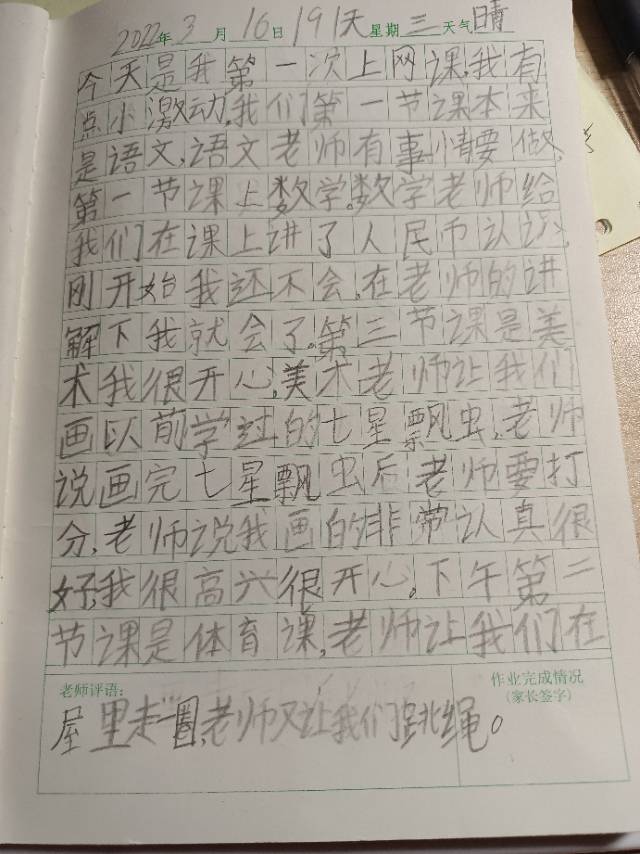 2022年3月16日191天星期三天气晴
今天是我第一次上网课,我有
点小激动,我们第一节课本来
是语文,语文老师有事情要做,
第一节课上数学。数学老师给
我们在课上讲了人民币认识,
刚开始我还不会,在老师的讲
解下我就会了。第三节课是美
术我很开心,美术老师让我们
画以前学过的七星飘虫,老师
说画完七星飘虫后老师要打
分,老师说我画的非常认真很
好,我很高兴很开心。下午第二
节课是体育课,老师让我们在
老师评语:
作业完成情况
(家长签字)
屋里走一圈,老师又让我们跳绳。